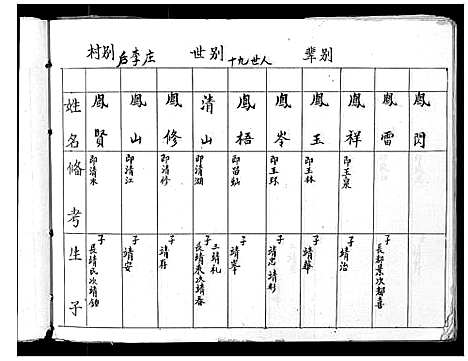 村别 后李庄 世别 十九世人 辈别
姓名 鳳賢 鳳山 鳳修 清山 鳳梧 鳳岑 鳳玉 鳳祥 鳳雷 鳳閃
備考 即清水 即清江 即清修 即清湖 即玉环 即玉林 即玉泉
生子 子 長靖民次靖 子 靖安 子 靖存 子 長靖來次靖春 三靖礼 子 靖峯 子 靖忠 靖彩 子 靖華 子 靖治 子 長郝景次郝喜